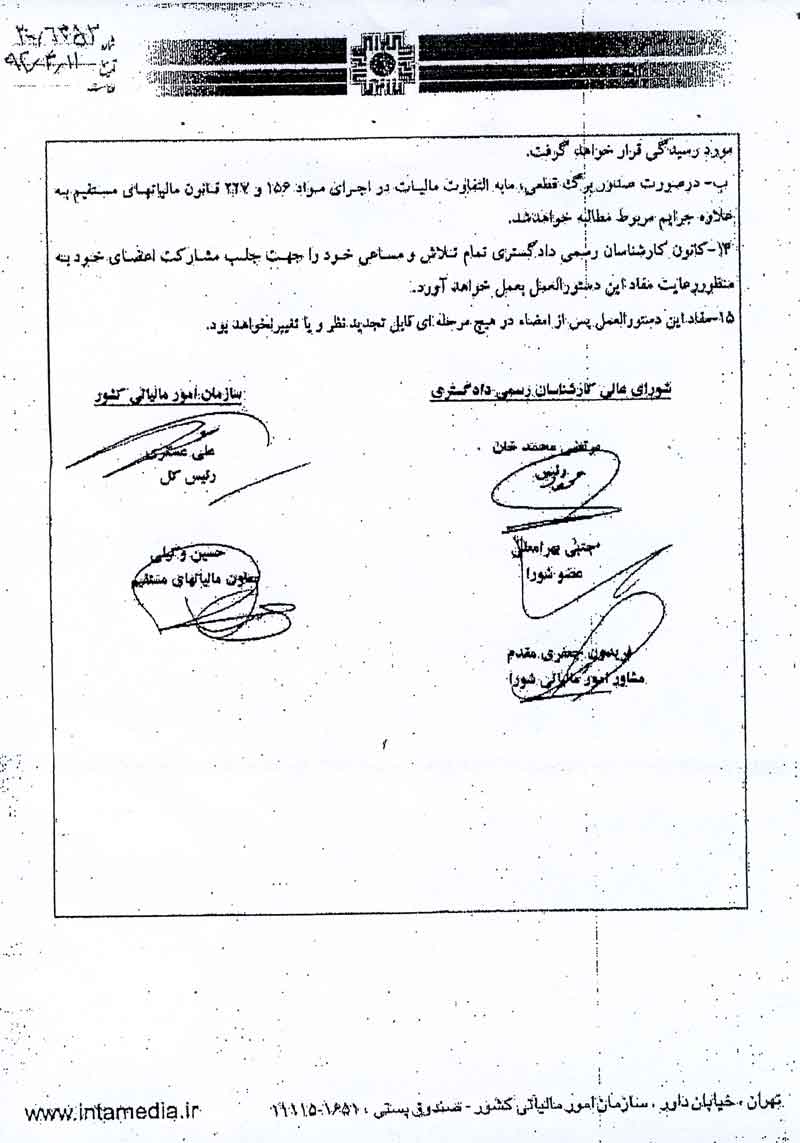 شماره ۲۰۰/۶۳۵۳
تاریخ ۹۲/۴/۱۱
مورد رسیدگی قرار خواهد گرفت.
ب- درصورت صدور برگ قطعی، مابه التفاوت مالیات در اجرای مواد ۱۵۶ و ۲۲۷ قانون مالیاتهای مستقیم به
علاوه جرایم مربوط مطالبه خواهدشد.
۱۴-کانون کارشناسان رسمی دادگستری تمام تلاش و مساعی خود را جهت جلب مشارکت اعضای خود به
منظوررعایت مفاد این دستورالعمل بعمل خواهد آورد.
۱۵-مفاداین دستورالعمل پس از امضاء در هیچ مرحله ای قابل تجدید نظر و یا تغییرنخواهد بود.
شورای عالی کارشناسان رسمی دادگستری
مرتضی محمد خان
رئیس
مجتبی بهرامعلی
عضو شورا
فریدون جعفری مقدم
مشاور امور مالیاتی شورا
سازمان امور مالیاتی کشور
علی عسکری
رئیس کل
حسین وکیلی
معاون مالیاتهای مستقیم
تهران ، خیابان داور ، سازمان امور مالیاتی کشور - صندوق پستی : ۱۶۵۱-۱۱۱۱۵
www.intamedia.ir